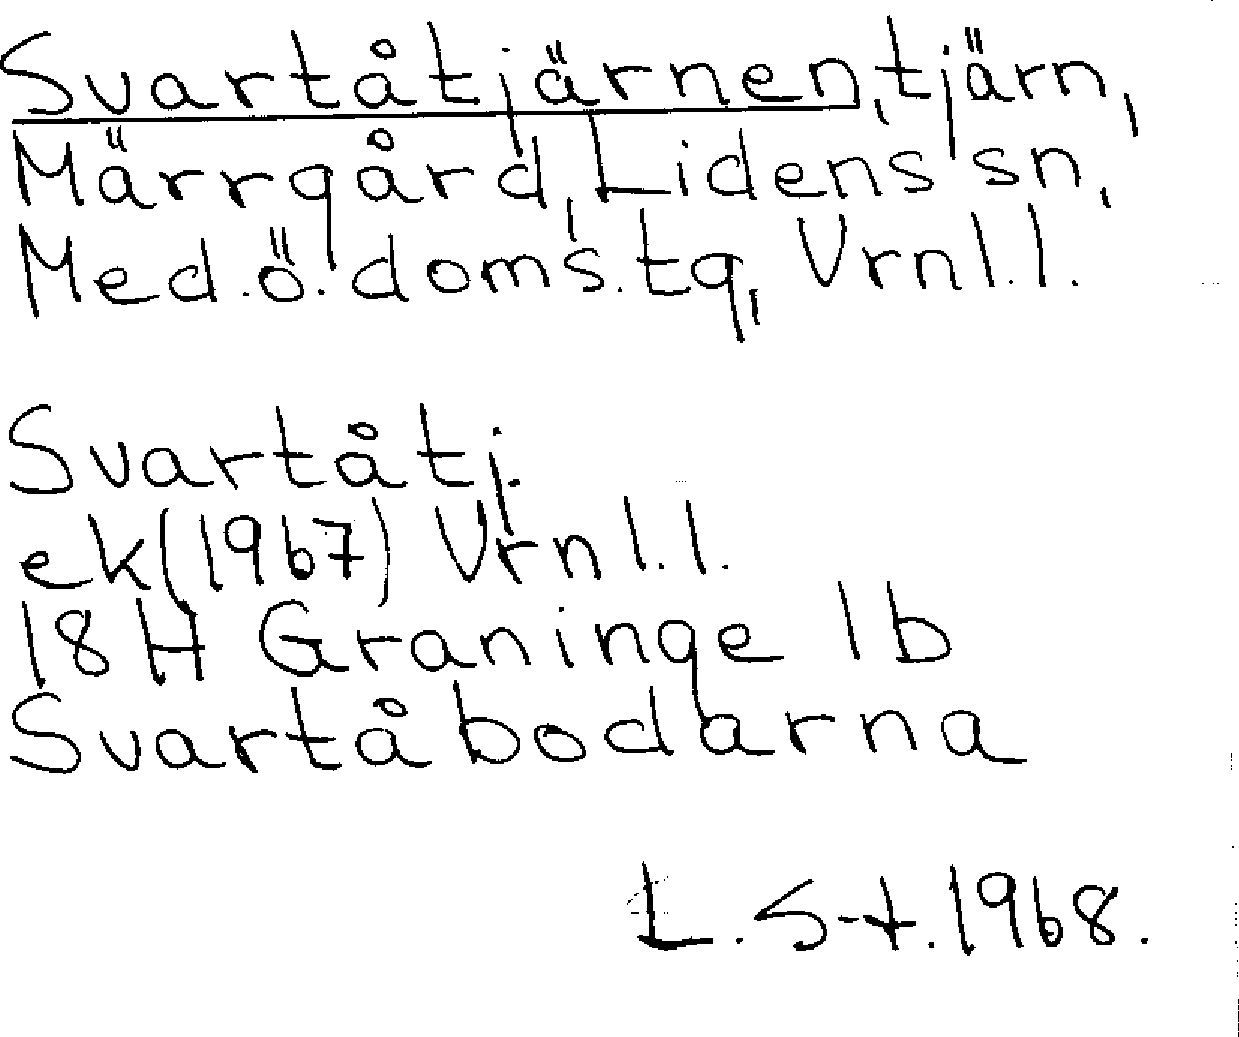 Svartåtjärnen, tjärn,
Märrgård, Lidens sn,
Med.ö. doms.tg, Vrnl.l.
Svartåtj.
ek (1967) Vrnl.l.
18H Graninge 1b
Svartåbodarna
L. S-t. 1968.